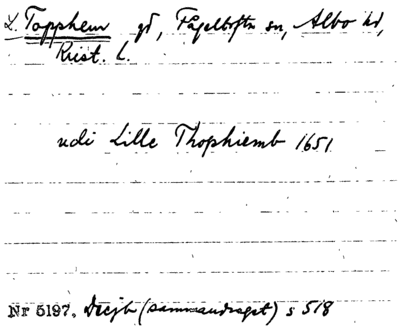 L. Topphem gd, Fågeltofta sn, Albo hd,
Krist. L.
udi Lille Thophiemb 1651
Nr 5197. Decjb (sammandraget) s 518